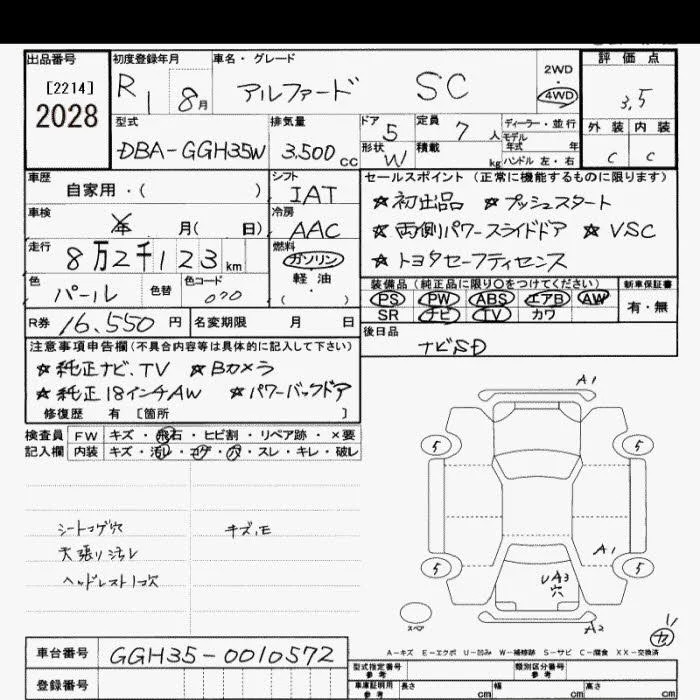 出品番号
[2214]
2028
初度登録年月
R1 8月
車名・グレード
アルファード SC
2WD
・
4WD
評価点
3,5
外装 内装
C C
型式
DBA-GGH35W
排気量
3,500cc
ドア
5
形状
W
定員
7人
積載
kg
ディーラー・並行
モデル年式 年
ハンドル 左・右
車歴
自家用・( )
シフト
IAT
車検
年 月( 日)
冷房
AAC
走行
8万2千123km
燃料
ガソリン
軽油
( )
色
パール
色替
色コード
070
セールスポイント(正常に機能するものに限ります)
☆初出品 ☆プッシュスタート
☆両側パワースライドドア ☆VSC
☆トヨタセーフティセンス
装備品(純正品に限り○をつけてください)
PS PW ABS エアB AW
SR ナビ TV カワ
新車保証書
有・無
R券 16,550円
名変期限 月 日
後日品
ナビSD
注意事項申告欄(不具合内容等は具体的に記入して下さい)
☆純正ナビ、TV ☆Bカメラ
☆純正18インチAW ☆パワーバックドア
修復歴 有 [箇所 ]
検査員記入欄
FW キズ・飛石・ヒビ割・リペア跡・×要
内装 キズ・汚レ・コゲ・穴・スレ・キレ・破レ
シートコゲ穴 キズ、モ
天張り汚レ
ヘッドレスト1穴
A1
5 5
A1
5 5
UA3
穴
スペア
A2
A-キズ E-エクボ U-凹み W-補修跡 S-サビ C-腐食 XX-交換済
車台番号
GGH35-0010572
登録番号
型式指定番号
参考
類別区分番号
参考
車庫証明用
参考
長さ cm 幅 cm 高さ cm